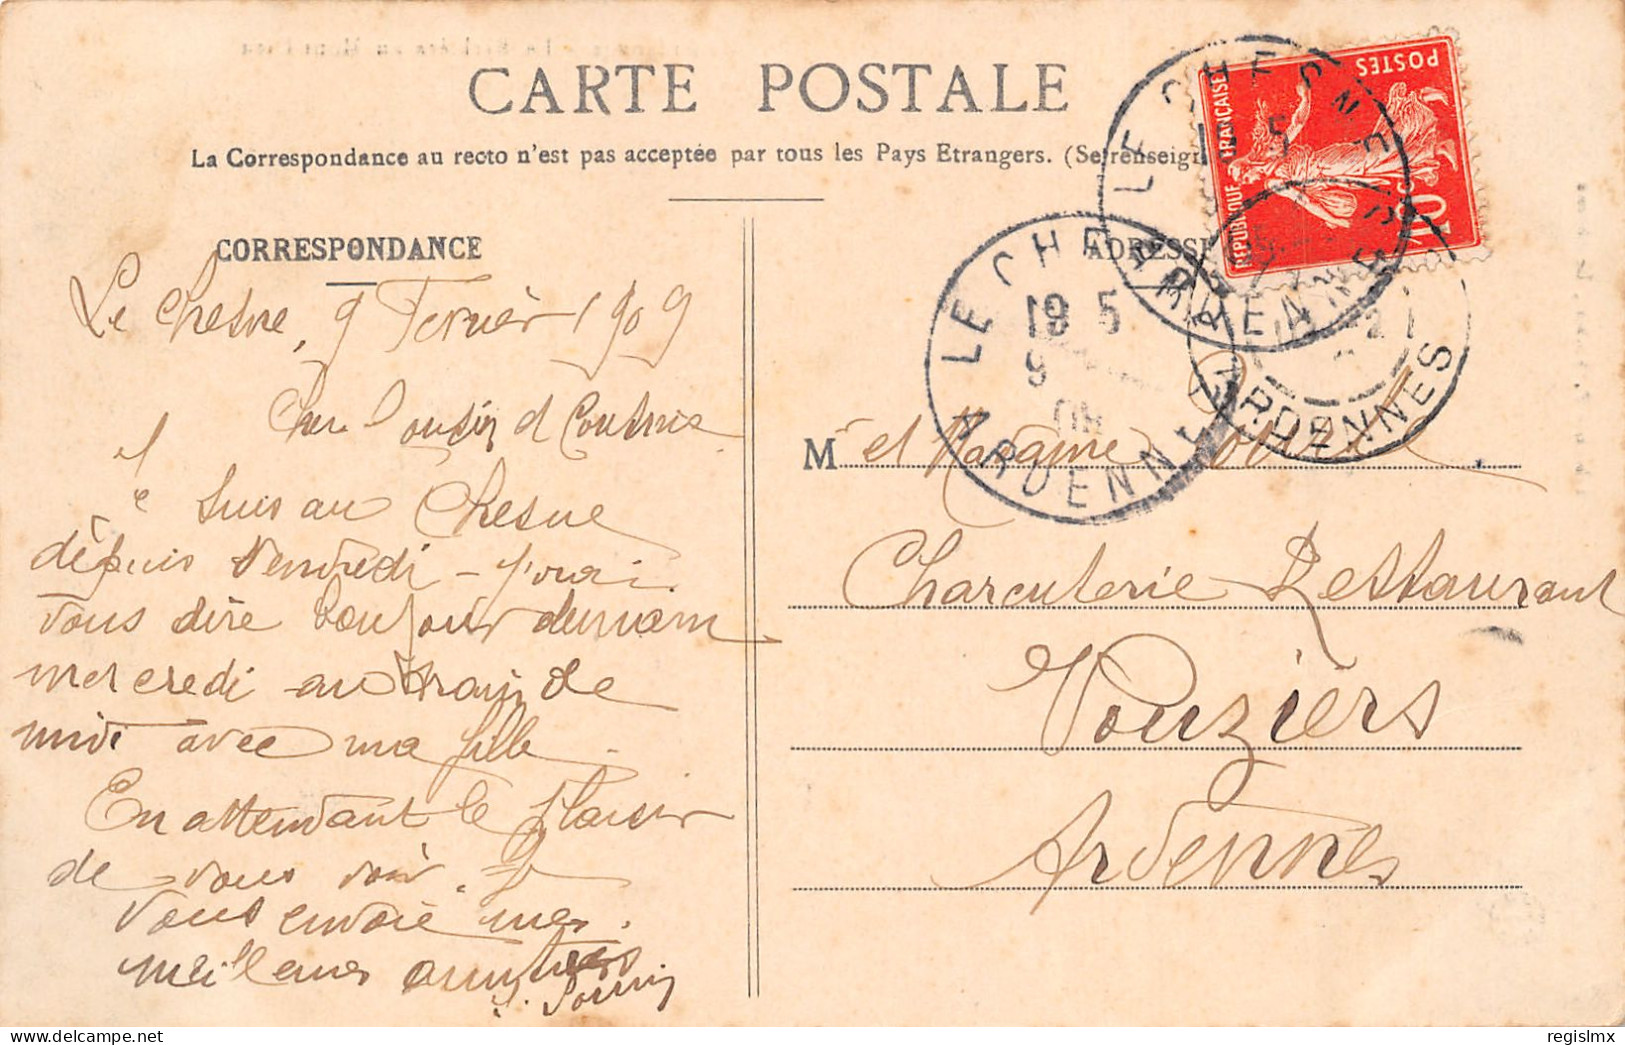 CARTE POSTALE
La Correspondance au recto n'est pas acceptée par tous les Pays Etrangers. (Se renseign
CORRESPONDANCE
ADRESSE
POSTES
REPUBLIQUE FRANÇAISE
10c
LE CHESNE
ARDENNES
LE CHE
19 5
9
ARDENNES
ARDENNES
Le Chesne, 9 Fevrier 1909
Cher Cousin et Cousine
Je suis au Chesne
depuis Vendredi – j'irai
vous dire bonjour demain
mercredi au train de
midi avec ma fille.
En attendant le plaisir
de vous voir. Je
vous envoie mes
meilleures amitiés
M et Madame
Charcuterie Restaurant
Vouziers
Ardennes
regislmx